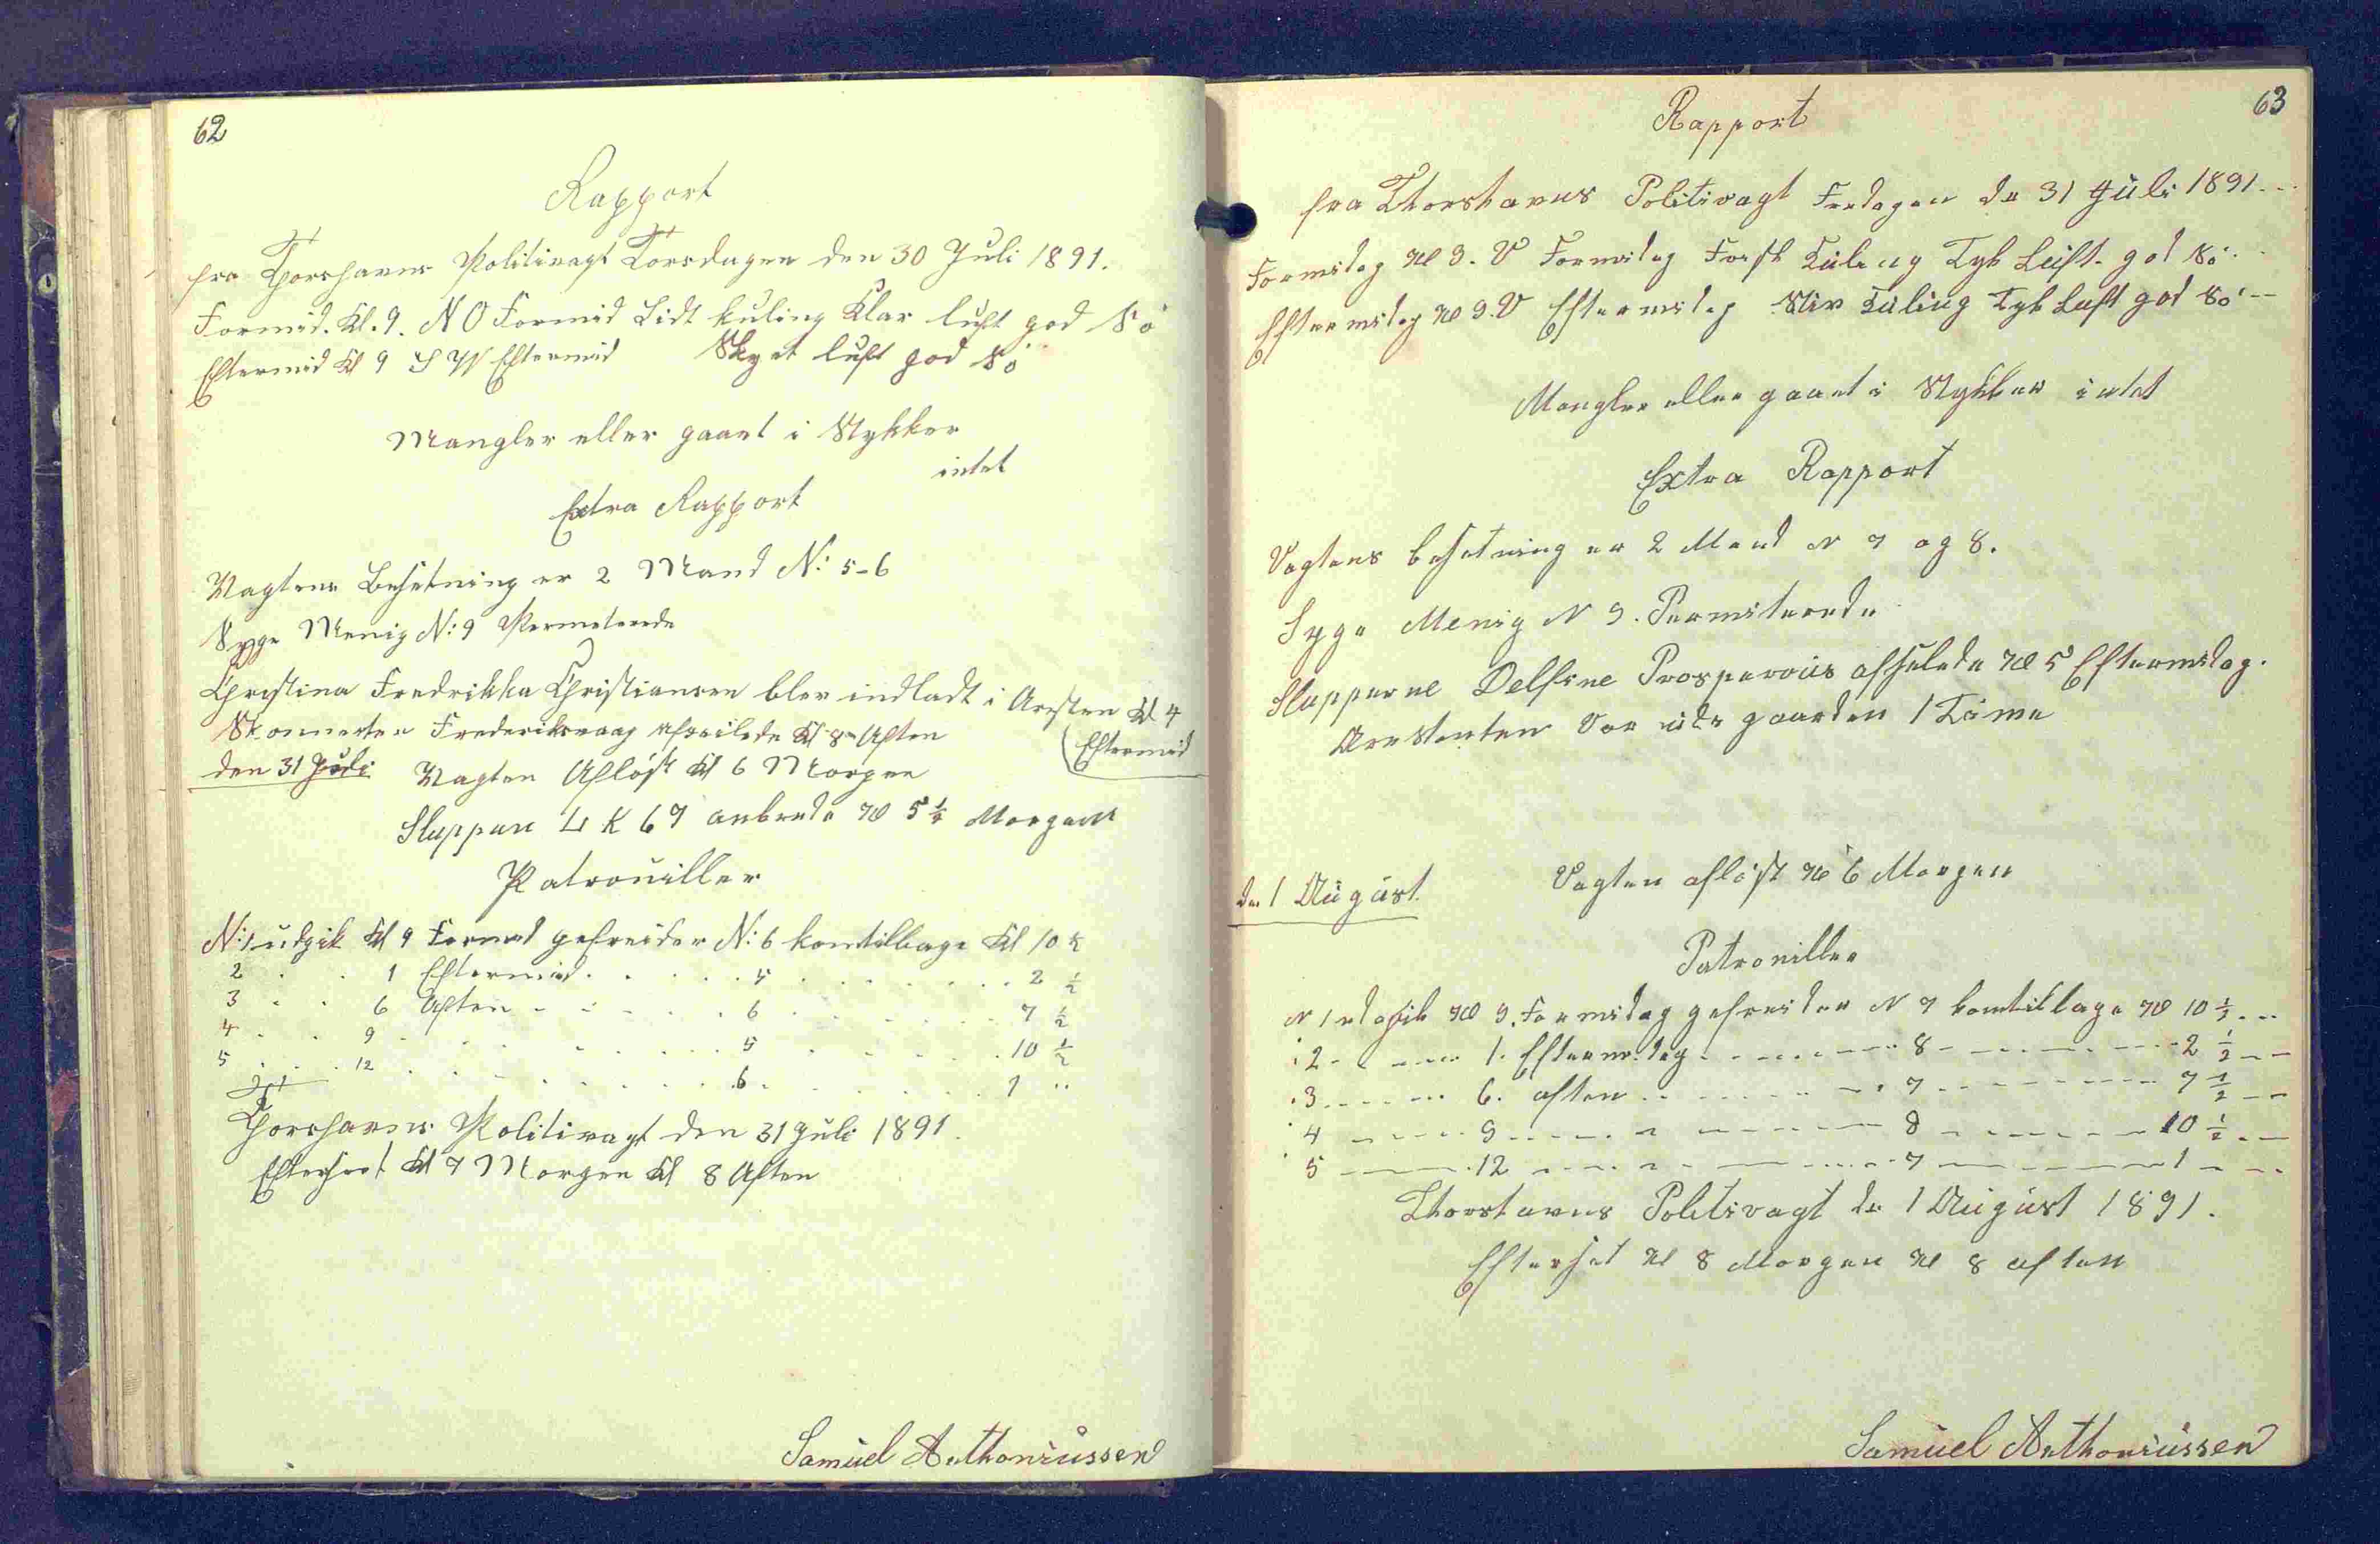 62
Rapport
fra Thorshavns Politivagt Torsdagen den 30 Juli 1891.
Formid. Kl. 9. N O Formid Lidt kuling Klar luft god Sö
Eftermid Kl 9 S W Eftermid Skyet luft god Sö
Mangler eller gaaet i Stykker
intet
Extra Rapport
Vagtens Besetning er 2 Mand N: 5-6
Syge Menig N: 9 Permeterede
Christina Fredrikka Christiansen blev indladt i Aresten Kl 4
Eftermid
Skonnerten Frederiksvaag afseilede Kl 8 Aften
den 31 Juli Vagten Aflöst Kl 6 Morgen
Sluppen L K 67 ankrede Kl 5 1/2 Morgen
Patrouiller
N: 1 udgik Kl 9 Formid gefreider N: 6 komtilbage Kl 10 1/2
2 . . 1 Eftermid . . . . 5 . . . . . . 2 1/2
3 . . 6 Aften . . . . 6 . . . . . . 7 1/2
4 . . 9 . . . . . . 5 . . . . . . 10 1/2
5 . . 12 . . . . . . 6 . . . . . . 1 ..
Thorshavns Politivagt den 31 Juli 1891.
Efterseet Kl 7 Morgen Kl 8 Aften
Samuel Anthoniussen
63
Rapport
fra Thorshavns Politivagt Fredagen de 31 Juli 1891...
Formidag Kl 9. V Formidag Frisk Kuling Tyk Luft. god Sö..
Eftermidag Kl 9. V Eftermidag Stiv Kuling Tyk Luft god Sö--
Mangler eller gaaet i Stykker intet
Extra Rapport
Vagtens besetning er 2 Mand N 7 og 8.
Syge Menig N 9. Permiterede
Slupperne Delfine Prosperous afseilede Kl 5 Eftermidag.
Arestanten Var udi gaarden 1 Time
den 1 August. Vagten aflöst Kl 6 Morgen
Patroniller
N 1 udgik Kl 9. Formidag gefreider N 7 komtilbage Kl 10 1/2...
2 - - - - 1. Eftermidag - - - - 8 - - - - 2 1/2 - -
3 - - - - 6. aften - - - - 7 - - - - 7 1/2 - -
4 - - - - 9 - - - - 8 - - - - 10 1/2 - -
5 - - - - 12 - - - - 7 - - - - 1 - -
Thorshavns Politivagt de 1 August 1891.
Efterset Kl 8 Morgen Kl 8 aften
Samuel Anthoniussen